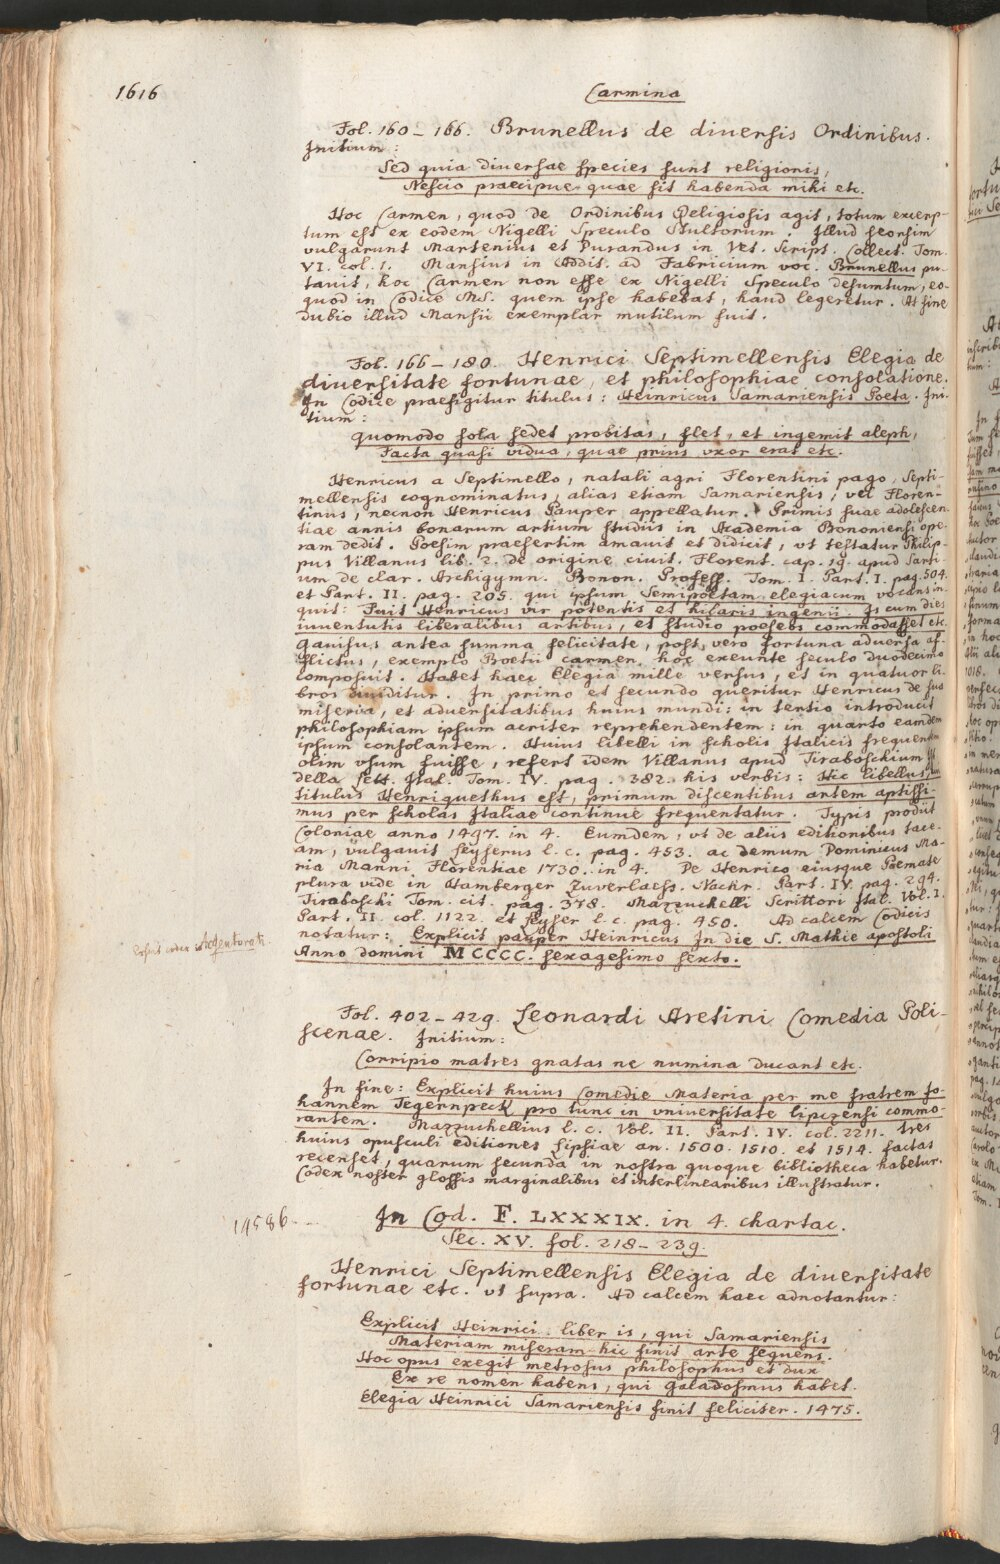 1616
Carmina
Fol. 160 – 166. Brunellus de diuersis Ordinibus.
Initium:
Sed quia diuersae species sunt religionis,
Nescio praecipue quae sit habenda mihi etc.
Hoc Carmen, quod de Ordinibus Religiosis agit, totum excerp-
tum est ex eodem Nigelli Speculo Stultorum. Illud seorsim
vulgarunt Martenius et Durandus in Vet. Script. Collect. Tom.
VI. col. 1. Mansius in Addit. ad Fabricium voc. Brunellus pu-
tauit, hoc Carmen non esse ex Nigelli Speculo desumtum, eo-
quod in Codice MS. quem ipse habebat, haud legeretur. At sine
dubio illud Mansii exemplar mutilum fuit.
Fol. 166 – 180. Henrici Septimellensis Elegia de
diuersitate fortunae, et philosophiae consolatione.
In Codice praefigitur titulus: Heinricus Samariensis Poeta. Ini-
tium:
Quomodo sola sedet probitas, flet, et ingemit aleph,
Facta quasi vidua, quae prius vxor erat etc.
Henricus a Septimello, natali agri Florentini pago, Septi-
mellensis cognominatus, alias etiam Samariensis, vel Floren-
tinus, necnon Henricus Pauper appellatur. Primis suae adolescen-
tiae annis bonarum artium studiis in Academia Bononiensi ope-
ram dedit. Poesim praesertim amauit et didicit, vt testatur Philip-
pus Villanus lib. 2. de origine ciuit. Florent. cap. 19. apud Sarti-
um de clar. Archigymn. Bonon. Profess. Tom. I. Part. I. pag. 504.
et Part. II. pag. 205. qui ipsum Semipoëtam elegiacum vocans in-
quit: Fuit Henricus vir potentis et hilaris ingenii. Is cum dies
iuuentutis liberalibus artibus, et studio poesebs commodasset etc.
gauisus antea summa felicitate, post vero fortuna aduersa af-
flictus, exemplo Boetii carmen hoc exeunte seculo duodecimo
composuit. Habet haec Elegia mille versus, et in quatuor li-
bros diuiditur. In primo et secundo queritur Henricus de sua
miseria, et aduersitatibus huius mundi: in tertio introducit
philosophiam ipsum acriter reprehendentem: in quarto eamdem
ipsum consolantem. Huius libelli in scholis Italicis frequentem
olim vsum fuisse, refert idem Villanus apud Tiraboschium St.
della lett. Ital. Tom. IV. pag. 382. his verbis: Hic libellus, cui
titulus Henriquethus est, primum discentibus artem aptissi-
mus per scholas Italiae continue frequentatur. Typis prodiit
Coloniae anno 1497. in 4. Eumdem, vt de aliis editionibus tace-
am, vulgauit Leyserus l. c. pag. 453. ac demum Dominicus Ma-
ria Manni Florentiae 1730. in 4. De Henrico eiusque Poemate
plura vide in Hamberger Zuverlaess. Nachr. Part. IV. pag. 294.
Tiraboschi Tom. cit. pag. 378. Mazzuchelli Scrittori Ital. Vol. I.
Part. II. col. 1122. et Leyser l. c. pag. 450. Ad calcem Codicis
notatur: Explicit pauper Heinricus In die S. Mathie apostoli
Anno domini MCCCC. sexagesimo sexto.
codex Argentorati.
Fol. 402 – 429. Leonardi Aretini Comedia Poli-
scenae. Initium:
Corripio matres gnatas ne numina ducant etc.
In fine: Explicit huius Comedie Materia per me fratrem Jo-
hannem Tegernpeck pro tunc in vniuersitate lipczensi commo-
rantem. Mazzuchellius l. c. Vol. II. Part. IV. col. 2211. tres
huius opusculi editiones Lipsiae an. 1500. 1510. et 1514. factas
recenset, quarum secunda in nostra quoque bibliotheca habetur.
Codex noster glossis marginalibus et interlinearibus illustratur.
14586.
In Cod. F. LXXXIX. in 4. chartac.
Sec. XV. fol. 218 – 239.
Henrici Septimellensis Elegia de diuersitate
fortunae etc. vt supra. Ad calcem haec adnotantur:
Explicit Heinrici liber is, qui Samariensis
Materiam miseram hic finit arte sequens.
Hoc opus exegit metrosus philosophus et dux
Ex re nomen habens, qui galadosmus habet.
Elegia Heinrici Samariensis finit feliciter. 1475.